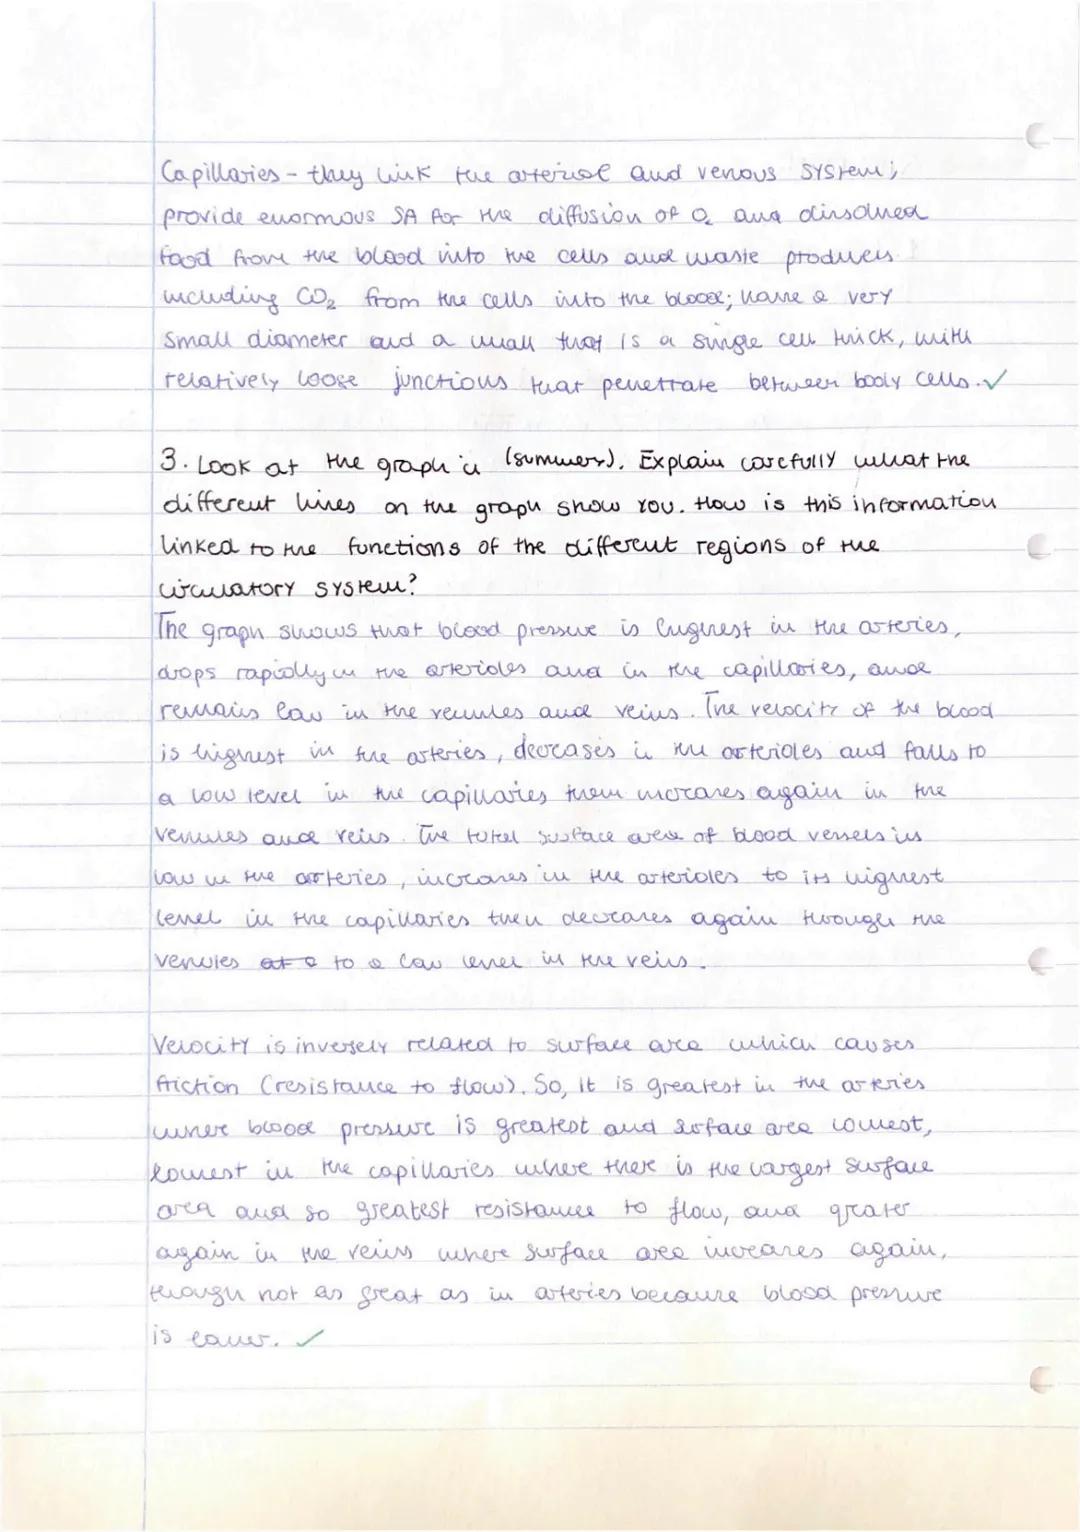 Capillaries - they link the arterial and venous system;
provide enormous SA for the diffusion of O₂ and dissolved
food from the blood into the cells and waste products
including CO₂ from the cells into the blood; have a very
small diameter and a wall that is a single cell thick, with
relatively loose junctions that penetrate between body cells. ✓
3. Look at the graph in (summers). Explain carefully what the
different lines on the graph show you. How is this information
linked to the functions of the different regions of the
circulatory system?
The graph shows that blood pressure is highest in the arteries,
drops rapidly in the arterioles and in the capillaries, and
remains low in the venules and veins. The velocity of the blood
is highest in the arteries, decreases in the arterioles and falls to
a low level in the capillaries then increases again in the
venules and veins. The total surface area of blood vessels is
low in the arteries, increases in the arterioles to its highest
level in the capillaries then decreases again through the
venules at a to a low level in the veins.
Velocity is inversely related to surface area which causes
friction (resistance to flow). So, it is greatest in the arteries
where blood pressure is greatest and surface area lowest,
lowest in the capillaries where there is the largest surface
area and so greatest resistance to flow, and greater
again in the veins where surface area increases again,
though not as great as in arteries because blood pressure
is lower. ✓